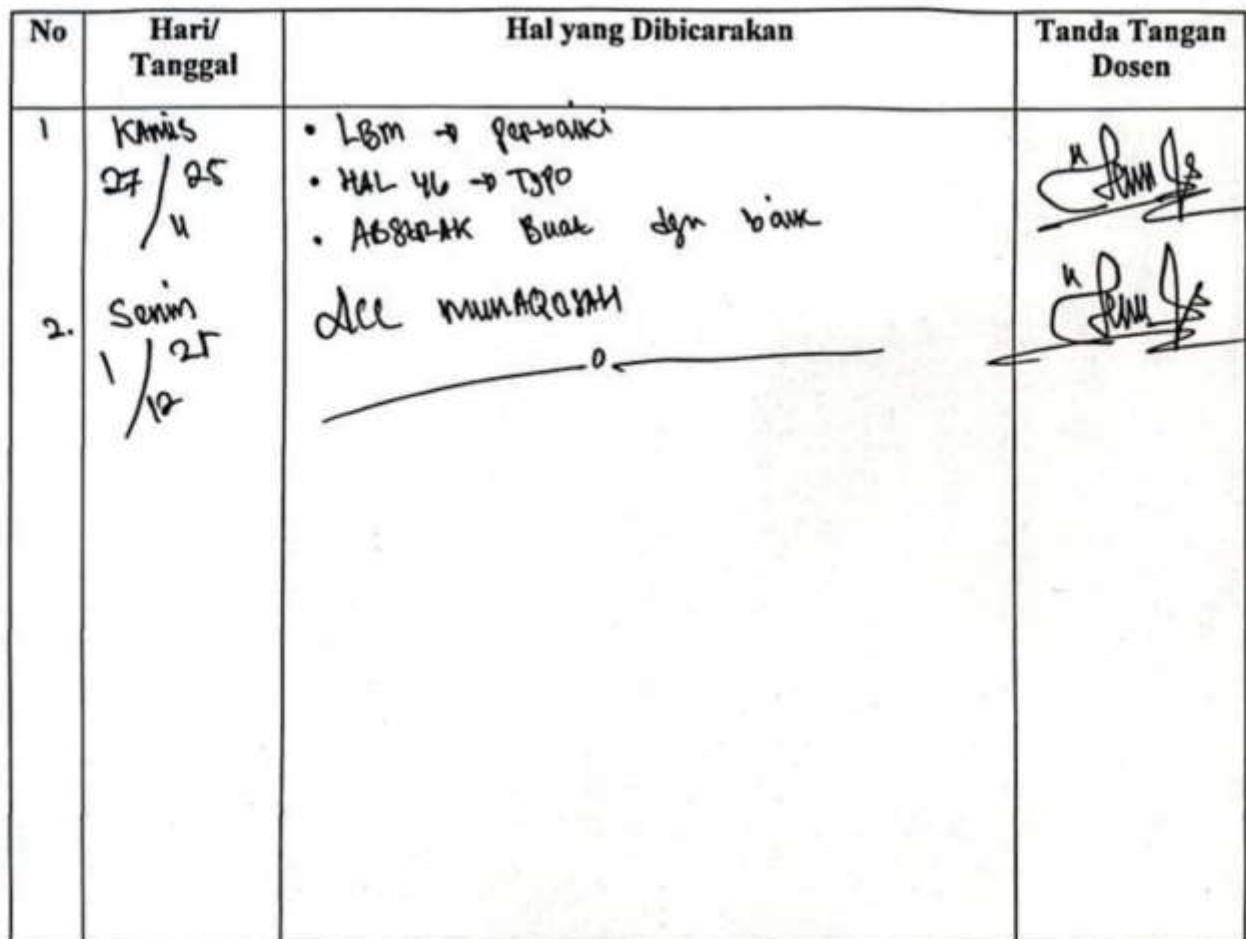 No Hari/ Tanggal Hal yang Dibicarakan Tanda Tangan Dosen
1 KAmis • LBM → perbaiki
27 / 25 • HAL 46 → TYPO
11 • ABSTRAK Buat dgn baik
2. Senin Acc MUNAQOSAH
1 / 25
12